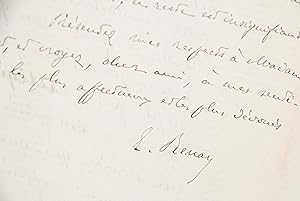 le reste est insignifiant
Présentez mes respects à Madame
et croyez, cher ami, à mes senti-
les plus affectueux et les plus dévoués
E. Renan